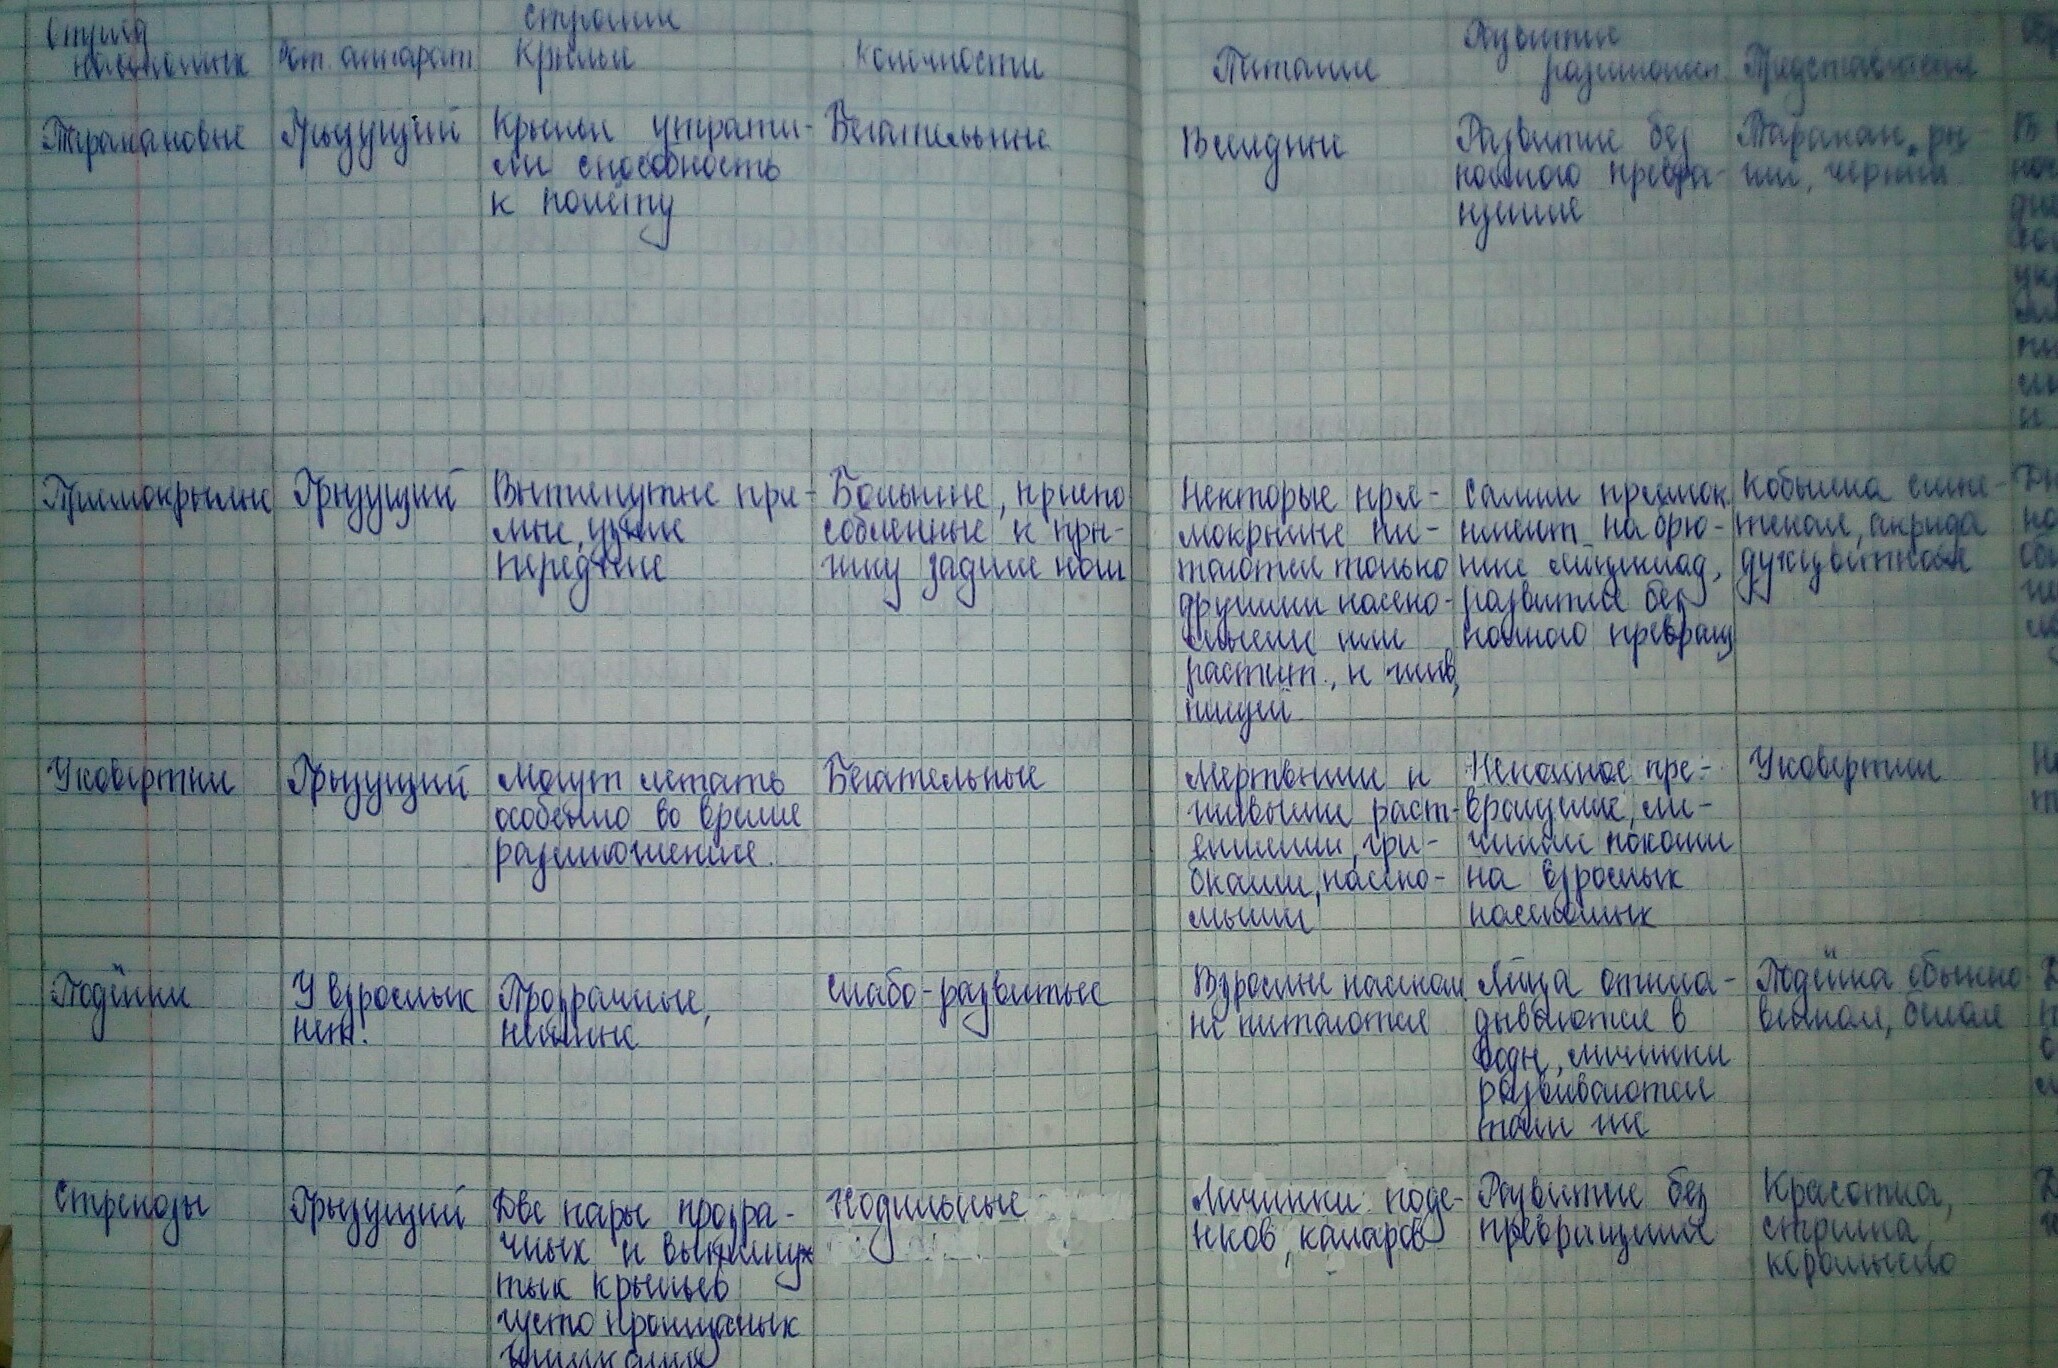 Отряд
насекомых
Рот. аппарат
строение
Крылья
Конечности
Питание
Развитие
размножен.
Представители
Таракановые
Грызущий
Крылья утрати-
ли способность
к полёту
Бегательные
Всеядные
Развитие без
полного превра-
щения
Таракан ры-
жий, черный
Прямокрылые
Грызущий
Вытянутые пря-
мые, узкие
передние
Большие, приспо
собленные к пры-
жку задние ноги
Некоторые пря-
мокрылые пи-
таются только
другими насеко-
мыми или
растит., и жив.
пищей
самки прямок.
имеют на брю-
шке яйцеклад,
развитие без
полного превращ
Кобылка сине-
Уховёртки
Грызущий
Могут летать
особенно во время
размножения.
Бегательные
Мертвыми и
живыми раст-
ениями, гри-
бками, насеко-
мыми
Неполное пре-
вращение, ли-
чинки похожи
на взрослых
насекомых
Уховёртки
Подёнки
У взрослых
нет.
Прозрачные,
нежные
слабо-развитые
Взрослые насеком
не питаются
Яйца откла-
дываются в
воду, личинки
развиваются
там же
Подёнка обыкно-
венная, белая
Стрекозы
Грызущий
Две пары прозра-
чных и вытяну-
тых крыльев
густо пронизаных
жилками
Ходильные
Личинки поде-
нков, комаров
Развитие без
превращения
Красотка,
стрелка
коромысло